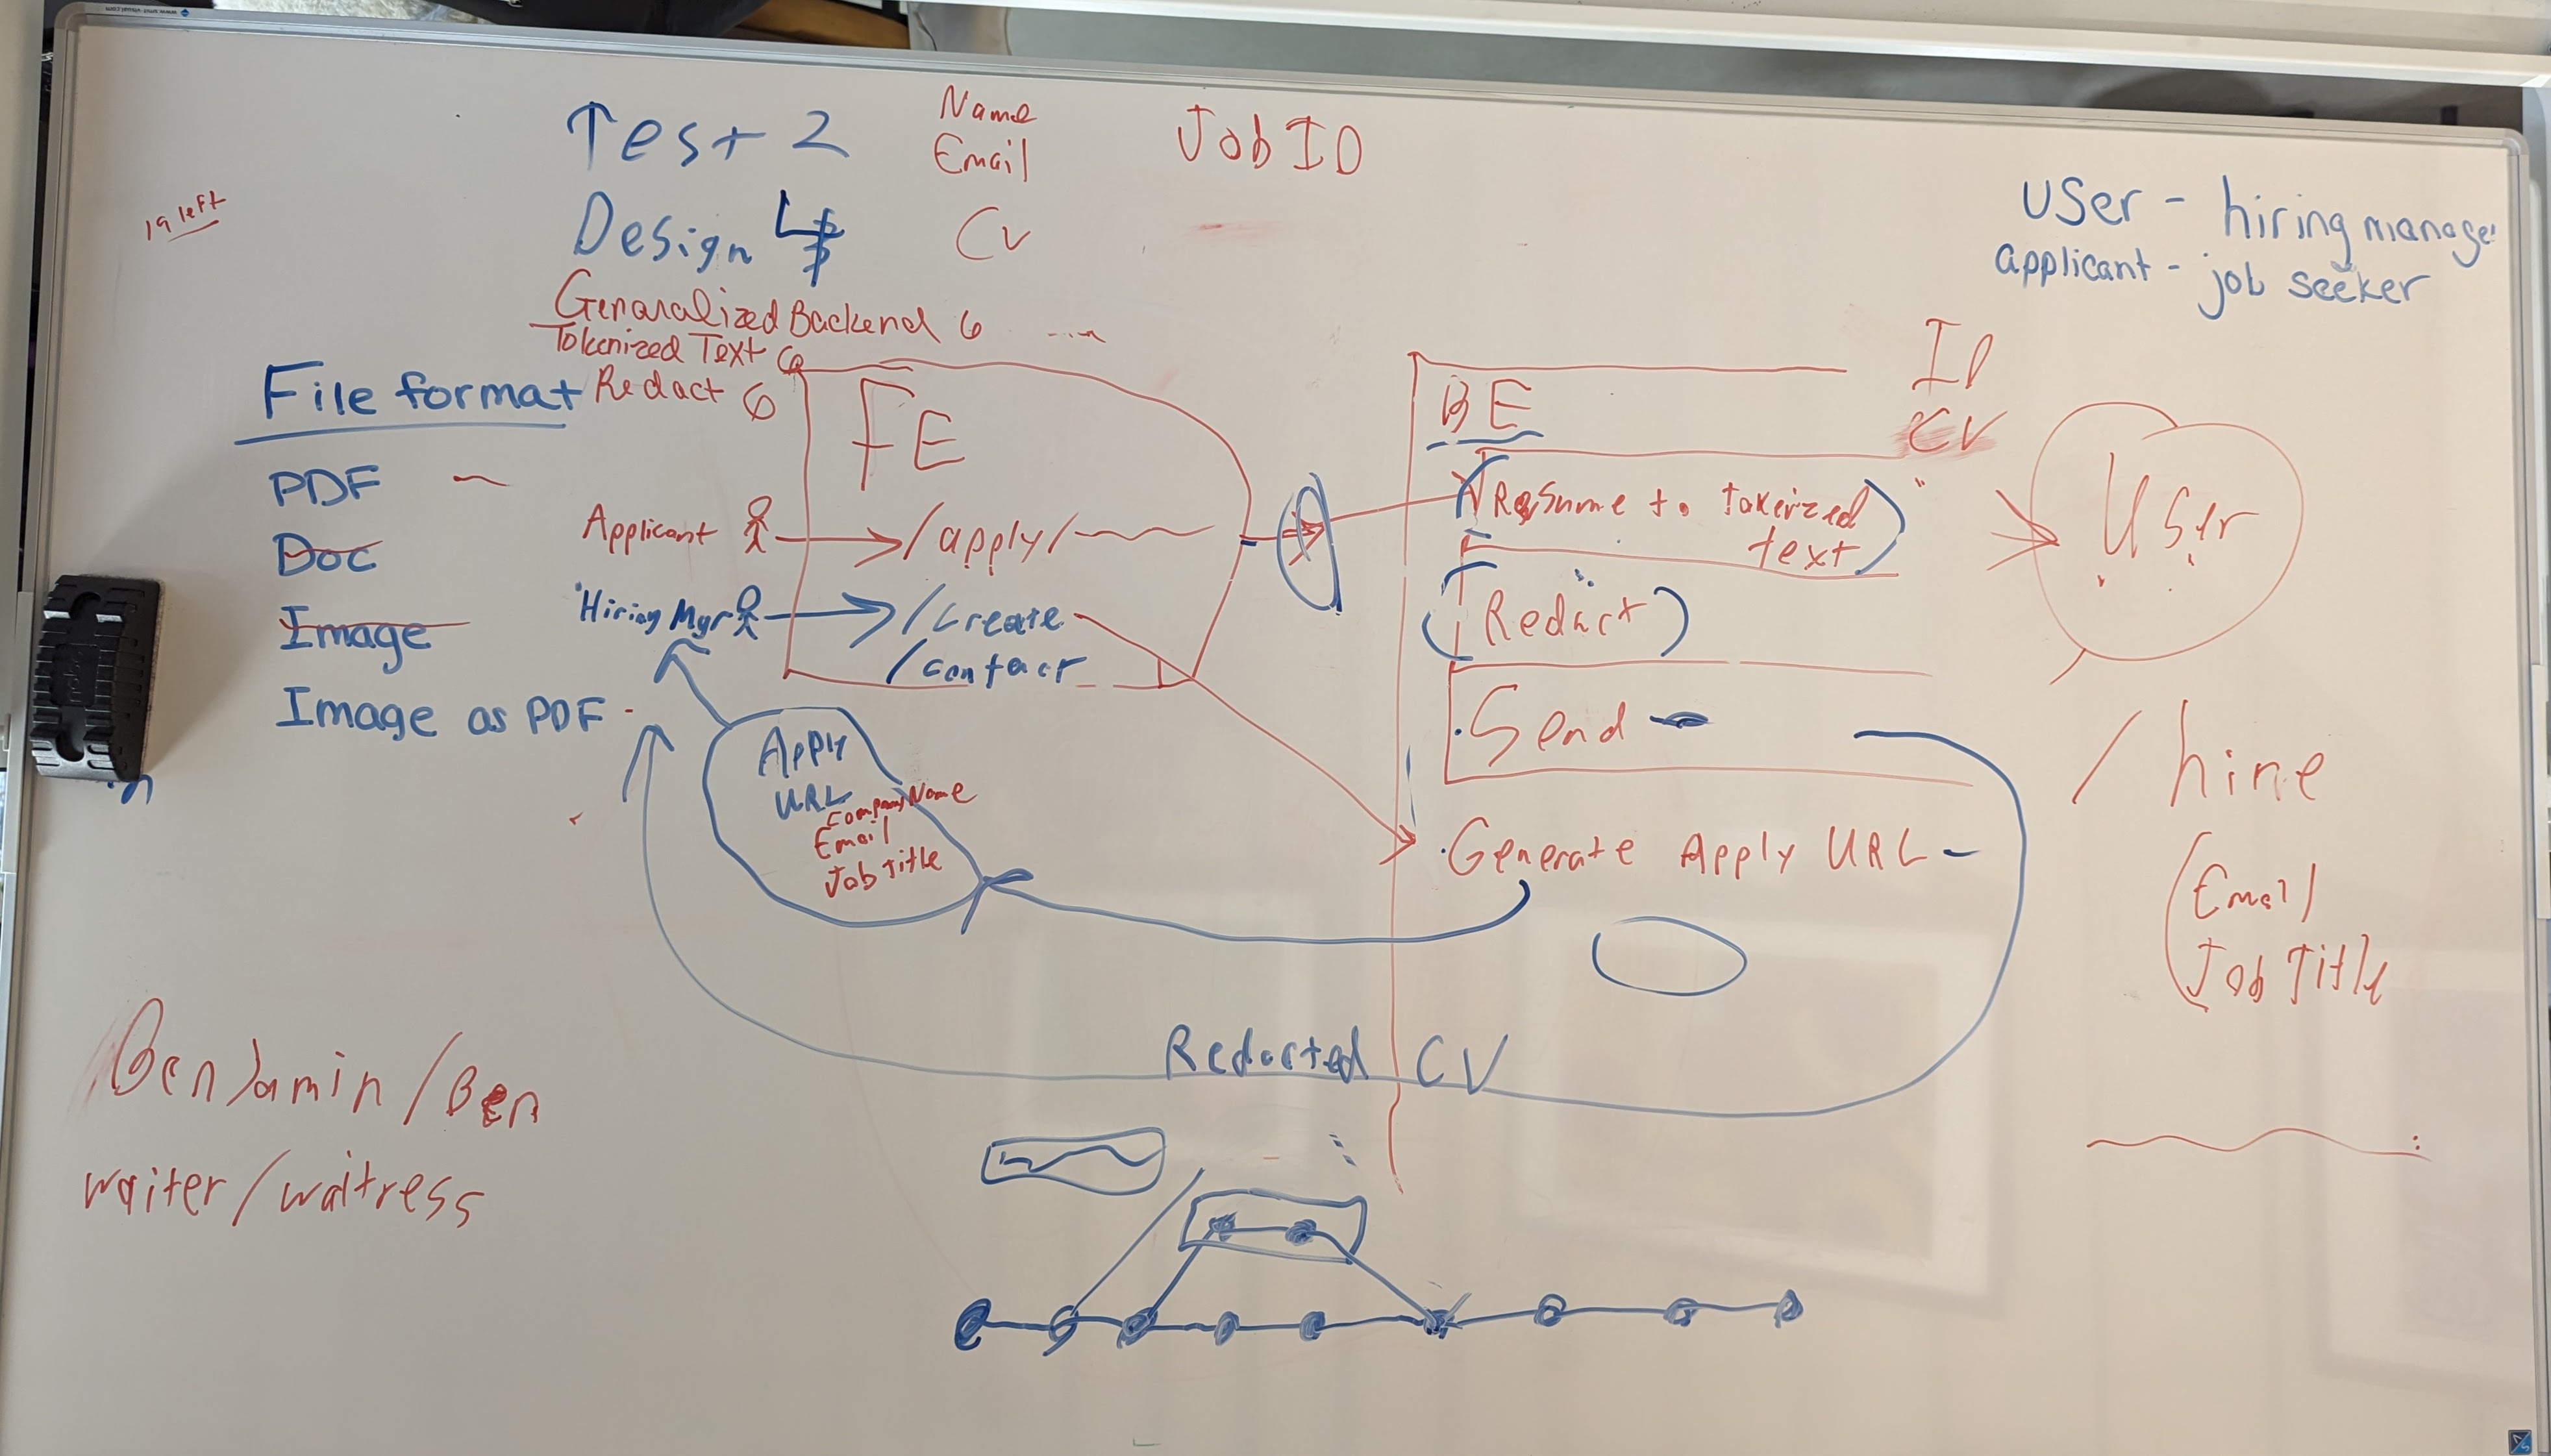 Test 2
Design
Name
Email
CV
Job ID
19 left
User - hiring manage
applicant - job seeker
Genaralized Backend 6
Tokenized Text 6
Redact 6
File format
PDF
Doc
Image
Image as PDF -
FE
Applicant
/apply/
Hiring Mgr
/Create
/contact
Apply
URL
Company Name
Email
Job Title
BE
ID
CV
Resume to tokenized
text
(Redact)
Send -
Generate Apply URL -
User
/hire
Email
Job Title
Redacted CV
Benjamin/Ben
waiter/waitress